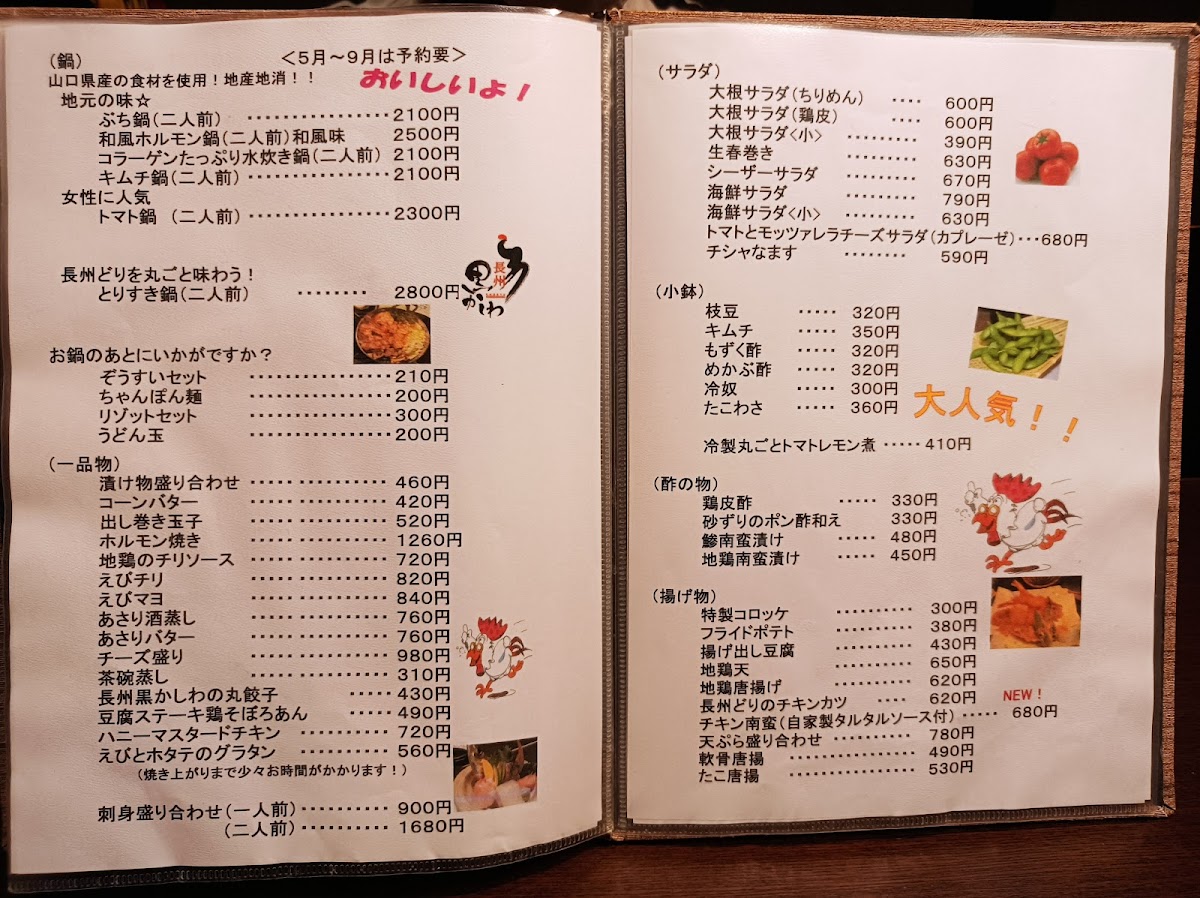 （鍋）　＜５月～９月は予約要＞
山口県産の食材を使用！地産地消！！　おいしいよ！
地元の味☆
ぶち鍋（二人前）　・・・・・・・・・・・・・・・・2100円
和風ホルモン鍋（二人前）和風味　2500円
コラーゲンたっぷり水炊き鍋（二人前）2100円
キムチ鍋（二人前）・・・・・・・・・・・・・・・・2100円
女性に人気
トマト鍋　（二人前）・・・・・・・・・・・・・・・・2300円
長州どりを丸ごと味わう！
とりすき鍋（二人前）　・・・・・・・・　2800円
長州
黒かしわ
お鍋のあとにいかがですか？
ぞうすいセット　・・・・・・・・・・・・・・・・210円
ちゃんぽん麺　・・・・・・・・・・・・・・・・200円
リゾットセット　・・・・・・・・・・・・・・・・300円
うどん玉　・・・・・・・・・・・・・・・・200円
（一品物）
漬け物盛り合わせ　・・・・・　・・・・・・・・・・　460円
コーンバター　・・・・・　・・・・・・・・・・　420円
出し巻き玉子　・・・・・　・・・・・・・・・・　520円
ホルモン焼き　・・・・・　・・・・・・・・・・　1260円
地鶏のチリソース　・・・・・　・・・・・・・・・・　720円
えびチリ　・・・・・　・・・・・・・・・・　820円
えびマヨ　・・・・・　・・・・・・・・・・　840円
あさり酒蒸し　・・・・・　・・・・・・・・・・　760円
あさりバター　・・・・・　・・・・・・・・・・　760円
チーズ盛り　・・・・・　・・・・・・・・・・　980円
茶碗蒸し　・・・・・　・・・・・・・・・・　310円
長州黒かしわの丸餃子　・・・・・　430円
豆腐ステーキ鶏そぼろあん　・・・・・　490円
ハニーマスタードチキン　・・・・・・・・・・　720円
えびとホタテのグラタン　・・・・・・・・・・　560円
（焼き上がりまで少々お時間がかかります！）
刺身盛り合わせ（一人前）・・・・・・・・・・　900円
（二人前）・・・・・・・・・・　1680円
（サラダ）
大根サラダ（ちりめん）　・・・・　600円
大根サラダ（鶏皮）　・・・・　600円
大根サラダ＜小＞　・・・・・・・・・　390円
生春巻き　・・・・・・・・・　630円
シーザーサラダ　・・・・・・・・・　670円
海鮮サラダ　・・・・・・・・・　790円
海鮮サラダ＜小＞　・・・・・・・・・　630円
トマトとモッツァレラチーズサラダ（カプレーゼ）・・・680円
チシャなます　・・・・・・・・　590円
（小鉢）
枝豆　・・・・・　320円
キムチ　・・・・・　350円
もずく酢　・・・・・　320円
めかぶ酢　・・・・・　320円
冷奴　・・・・・　300円
たこわさ　・・・・・　360円
大人気！！
冷製丸ごとトマトレモン煮　・・・・・410円
（酢の物）
鶏皮酢　・・・・・　330円
砂ずりのポン酢和え　330円
鯵南蛮漬け　・・・・・　480円
地鶏南蛮漬け　・・・・・　450円
（揚げ物）
特製コロッケ　・・・・・・・・・・　300円
フライドポテト　・・・・・・・・・・　380円
揚げ出し豆腐　・・・・・・・・・・　430円
地鶏天　・・・・・・・・・・　650円
地鶏唐揚げ　・・・・・・・・・・　620円
長州どりのチキンカツ　・・・・　620円　NEW！
チキン南蛮（自家製タルタルソース付）・・・・・　680円
天ぷら盛り合わせ　・・・・・・・・・・　780円
軟骨唐揚　・・・・・・・・・・・・・・・・　490円
たこ唐揚　・・・・・・・・・・・・・・・・　530円